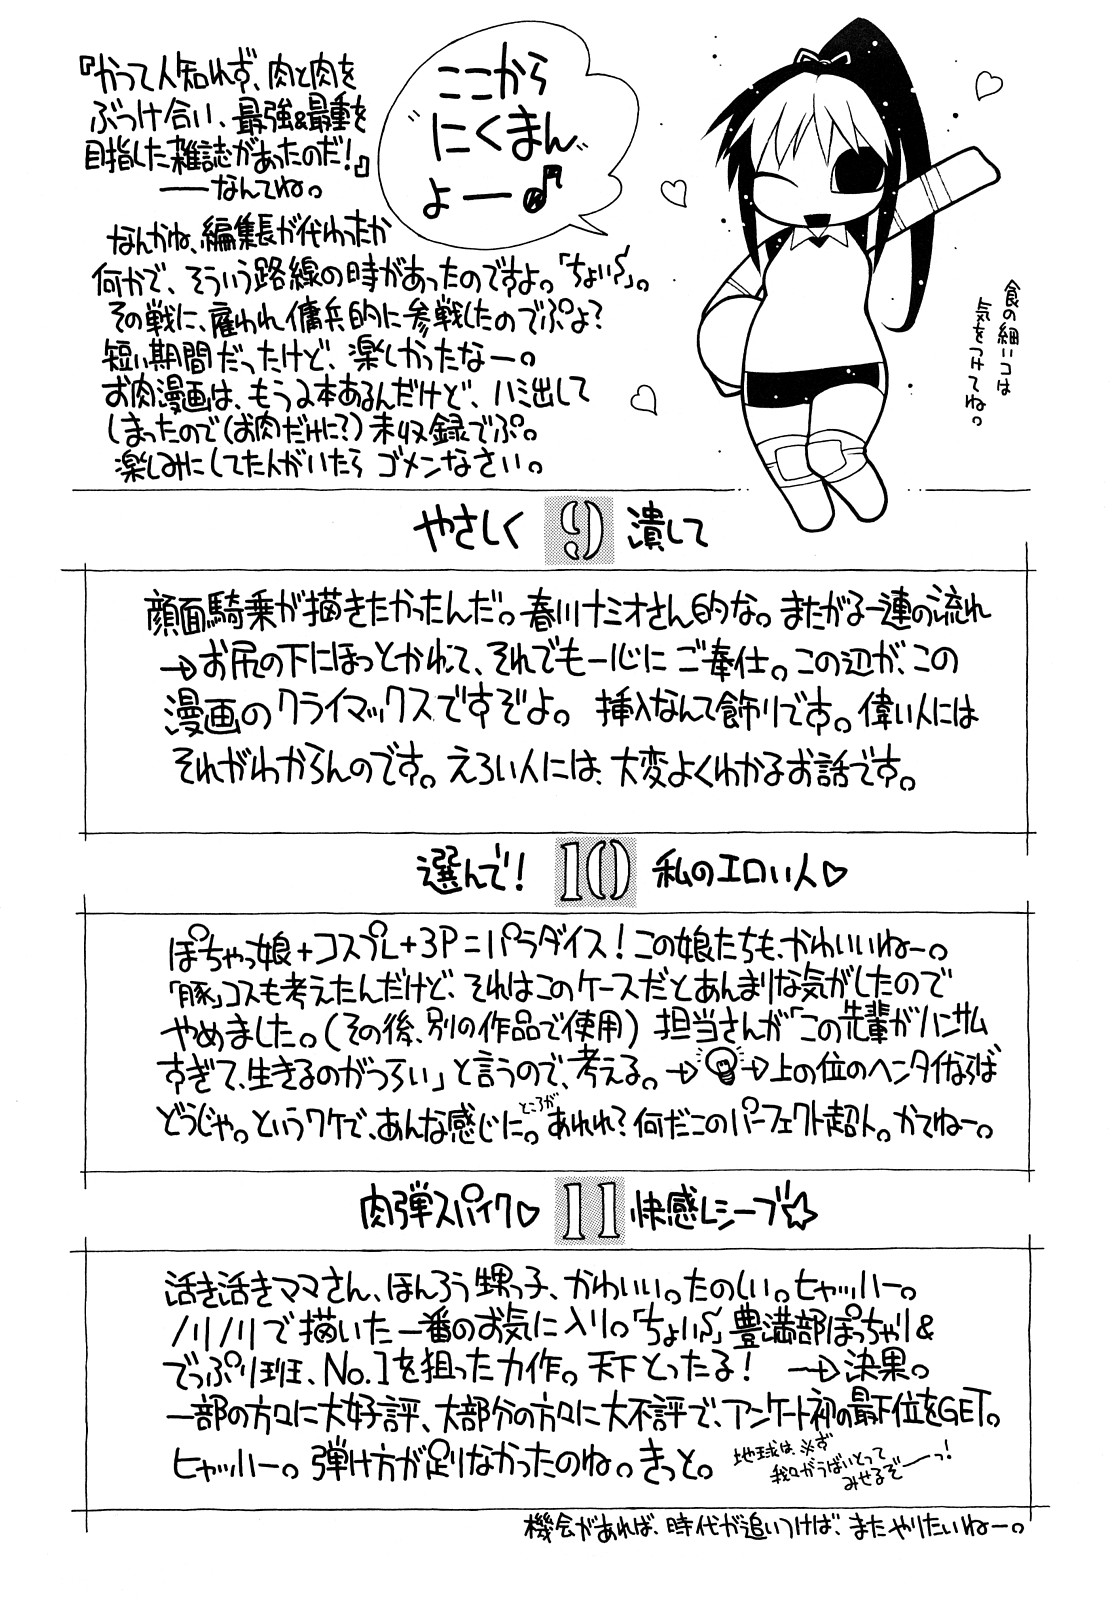 『かつて人知れず、肉と肉を
ぶつけ合い、最強&最重を
目指した雑誌があったのだ!』
——なんてね。
ここから
にくまん
よー♪
なんかね、編集長が代わったか
何かで、そういう路線の時があったのですよ。「ちょい〜」。
その戦に、雇われ傭兵的に参戦したのでぷよ?
短い期間だったけど、楽しかったなー。
お肉漫画は、もう2本あるんだけど、ハミ出して
しまったので(お肉だけに?)未収録でぷ。
楽しみにしてた人がいたら ゴメンなさい。
食の細いコは
気をつけてね。
やさしく 9 潰して
顔面騎乗が描きたかったんだ。春川ナミオさん的な。またがる一連の流れ
→お尻の下にほっとかれて、それでも一心にご奉仕。この辺が、この
漫画のクライマックスですぞよ。挿入なんて飾りです。偉い人には
それがわからんのです。えろい人には、大変よくわかるお話です。
選んで! 10 私のエロい人♡
ぽちゃっ娘+コスプレ+3P=パラダイス!この娘たちも、かわいいねー。
「豚」コスも考えたんだけど、それはこのケースだとあんまりな気がしたので
やめました。(その後、別の作品で使用)担当さんが「この先輩がハンサム
すぎて、生きるのがつらい」と言うので、考える。→💡→上の位のヘンタイならば
どうじゃ。というワケで、あんな感じに。ところがあれれ?何だこのパーフェクト超人。かてねー。
肉弾スパイク♡ 11 快感レシーブ☆
活き活きママさん、ほんろう甥っ子、かわいい。たのしい。ヒャッハー。
ノリノリで描いた一番のお気に入り。「ちょい〜」豊満部ぽっちゃり&
でっぷり班、No.1を狙った力作。天下とったる! →決果。
一部の方々に大好評、大部分の方々に大不評で、アンケート初の最下位をGET。
ヒャッハー。弾け方が足りなかったのね。きっと。
地球は、必ず
我々がうばいとって
みせるぞーっ!
機会があれば、時代が追いつけば、またやりたいねー。